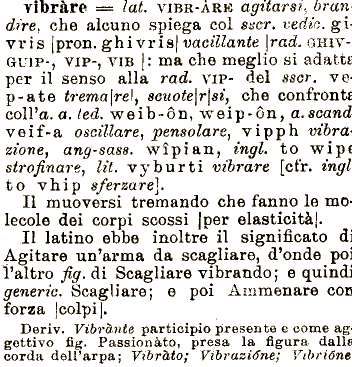 vibràre = lat. VIBR-ÀRE agitarsi, bran-
dire, che alcuno spiega col sscr. vedic. gi-
vris [pron. ghivris] vacillante [rad. GHIV-
GUIP-, VIP-, VIB]: ma che meglio si adatta
per il senso alla rad. VIP- del sscr. ve
p-ate trema[re], scuote[r]si, che confronta
coll'a. a. ted. weib-ôn, weip-ôn, a. scand
veif-a oscillare, pensolare, vipph vibra-
zione, ang-sass. wîpian, ingl. to wipe
strofinare, lit. vyburti vibrare [cfr. ingl
to vhip sferzare].
Il muoversi tremando che fanno le mo-
lecole dei corpi scossi [per elasticità].
Il latino ebbe inoltre il significato di
Agitare un'arma da scagliare, d'onde poi
l'altro fig. di Scagliare vibrando; e quindi
generic. Scagliare; e poi Ammenare con
forza [colpi].
Deriv. Vibrànte participio presente e come ag-
gettivo fig. Passionàto, presa la figura dalla
corda dell'arpa; Vibràto; Vibrazióne; Vibrióne